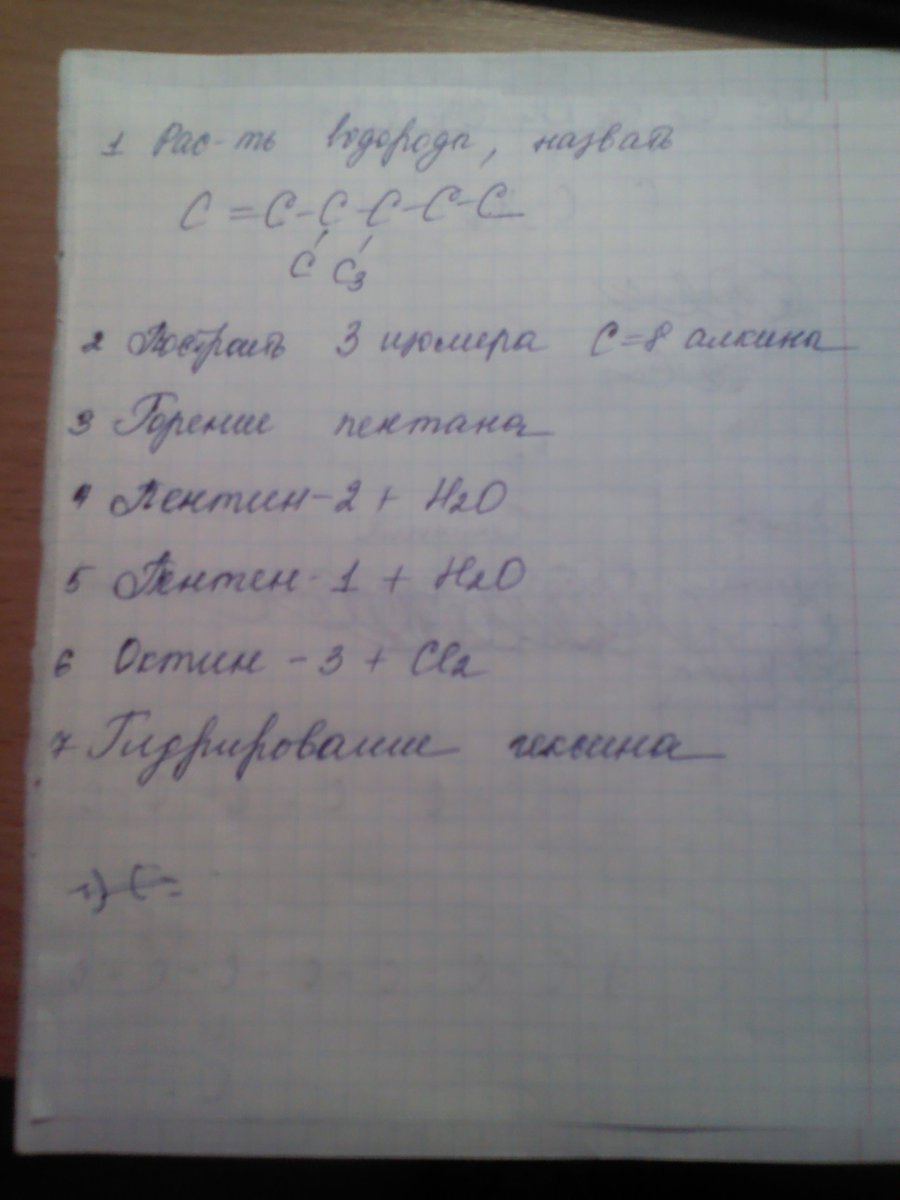 1 Рас-ть водорода, назвать
C=C-C-C-C-C
C C3
2 Построить 3 изомера C=8 алкина
3 Горение пентана
4 Пентин-2 + H2O
5 Пентен-1 + H2O
6 Октин-3 + Cl2
7 Гидрирование гексина
1) C=